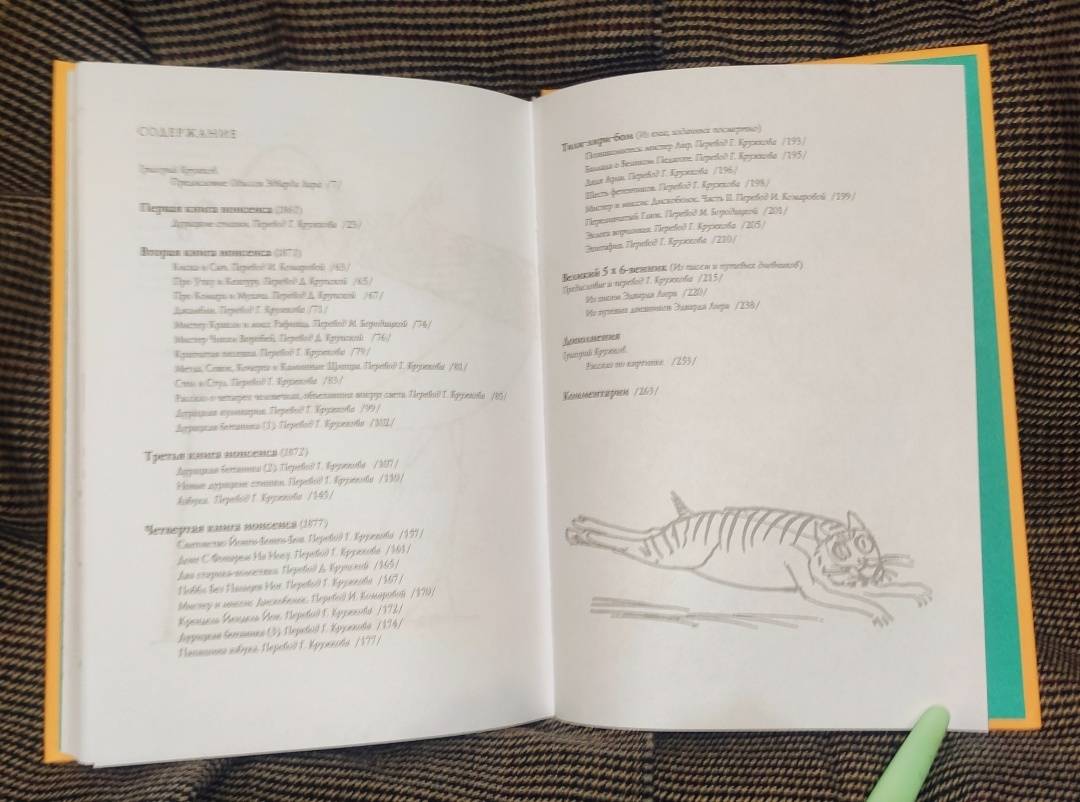 СОДЕРЖАНИЕ
Григорий Кружков
Предисловие. Эдварда Лира /7/
Первая книга нонсенса (1862)
Дурацкие стишки. Перевод Г. Кружкова /25/
Вторая книга нонсенса (1872)
и Сыч. Перевод И. Комаровой /63/
Про Утку и Кенгуру. Перевод Д. Крупской /65/
Про Комара и Мушку. Перевод Д. Крупской /67/
Джамбли. Перевод Г. Кружкова /71/
Мистер и мисс Перевод М. Бородицкой /74/
Мистер Чикки Воробей. Перевод Д. Крупской /76/
Перевод Г. Кружкова /79/
Метла, Совок, Кочерга и Каминные Щипцы. Перевод Г. Кружкова /81/
Стол и Стул. Перевод Г. Кружкова /83/
Рассказ о четырех человечках, объехавших вокруг света. Перевод Г. Кружкова /85/
Дурацкая кулинария. Перевод Г. Кружкова /99/
Дурацкая ботаника (1). Перевод Г. Кружкова /102/
Третья книга нонсенса (1872)
Дурацкая ботаника (2). Перевод Г. Кружкова /107/
Новые дурацкие стишки. Перевод Г. Кружкова /110/
Азбука. Перевод Г. Кружкова /145/
Четвертая книга нонсенса (1877)
Сватовство Йонги-Бонги-Боя. Перевод Г. Кружкова /157/
Донг С Фонарем На Носу. Перевод Г. Кружкова /161/
Два старика-холостяка. Перевод Д. Крупской /165/
Поббл Без Пальцев Ног. Перевод Г. Кружкова /167/
Мистер и миссис Дискоболос. Перевод И. Комаровой /170/
Перевод Г. Кружкова /172/
Дурацкая ботаника (3). Перевод Г. Кружкова /174/
азбука. Перевод Г. Кружкова /177/
(Из книг, изданных посмертно)
Познакомьтесь: мистер Лир. Перевод Г. Кружкова /193/
Баллада о Великом Педагоге. Перевод Г. Кружкова /195/
Дядя Арли. Перевод Г. Кружкова /196/
Шесть фельетонов. Перевод Г. Кружкова /198/
Мистер и миссис Дискоболос. Часть II. Перевод И. Комаровой /199/
Перевод М. Бородицкой /201/
Эклога Перевод Г. Кружкова /205/
Эпитафия. Перевод Г. Кружкова /210/
Великий 5 х 6-венник (Из писем и путевых дневников)
Предисловие и перевод Г. Кружкова /215/
Из писем Эдварда Лира /220/
Из путевых дневников Эдварда Лира /238/
Дополнения
Григорий Кружков
Рассказ по картинке /253/
Комментарии /263/